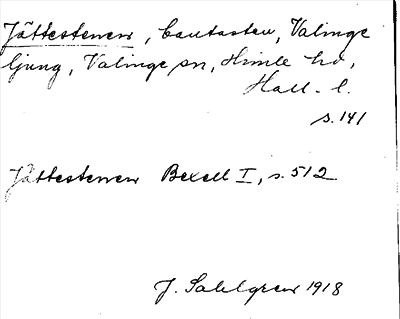 Jättestenen, bautasten, Valinge
ljung, Valinge sn, Himle hd,
Hall. l.
s. 141
Jättestenen Bexell I, s. 512
J. Sahlgren 1918